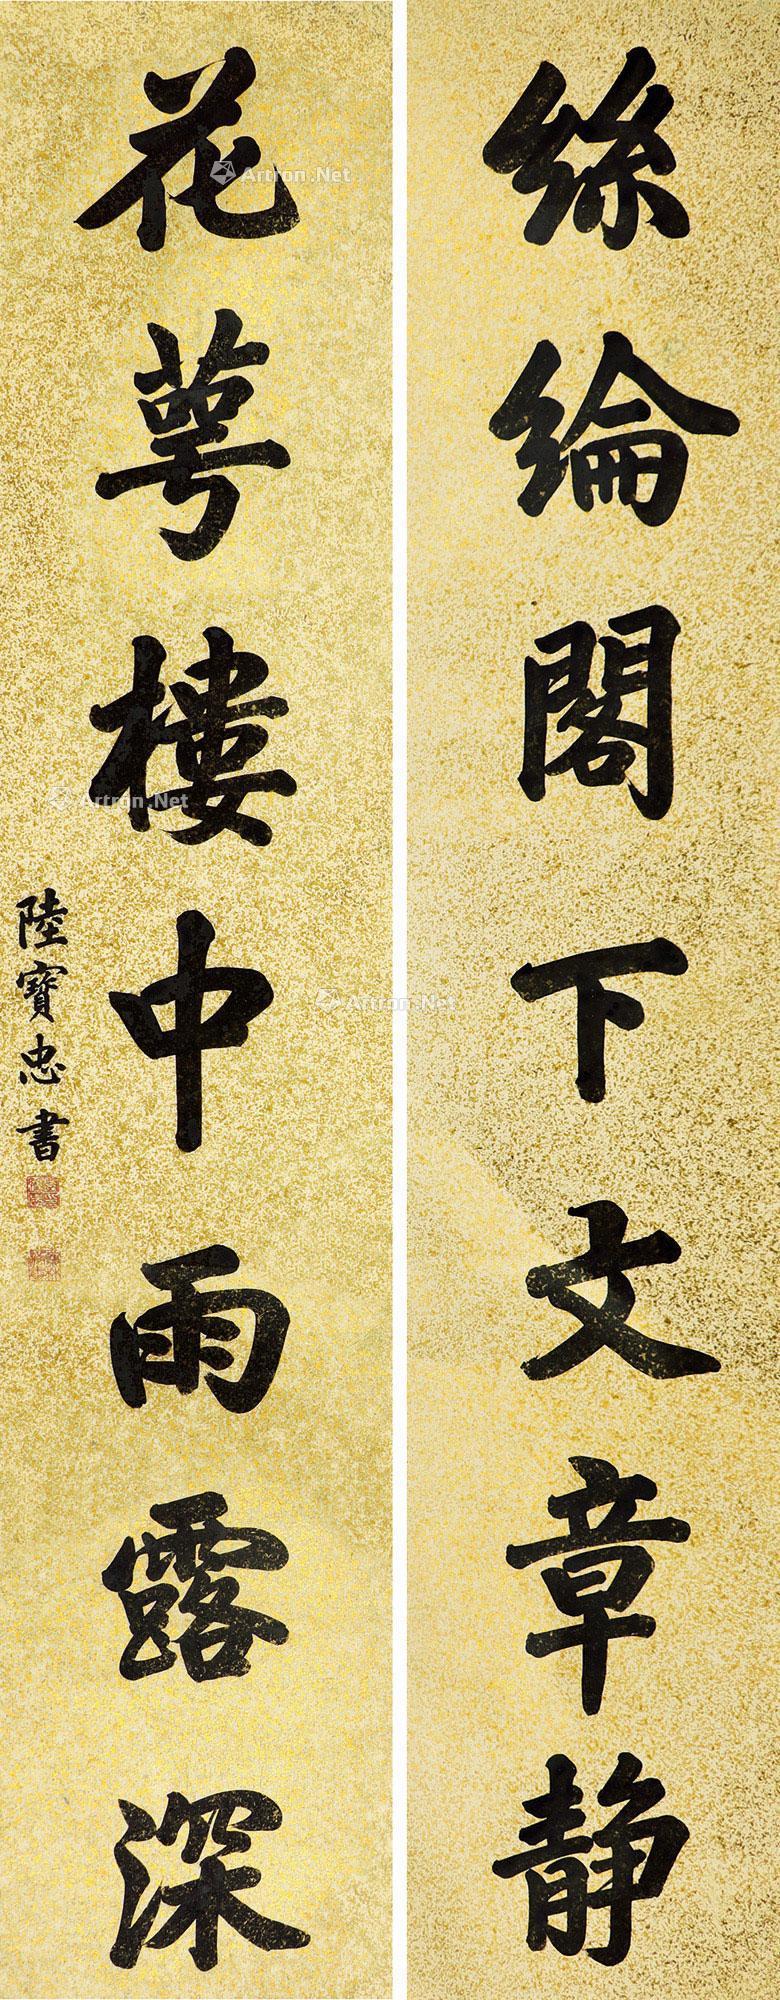 絲綸閣下文章靜
花萼樓中雨露深
陸寶忠書
Artron.Net
Artron.Net
Artron.Net